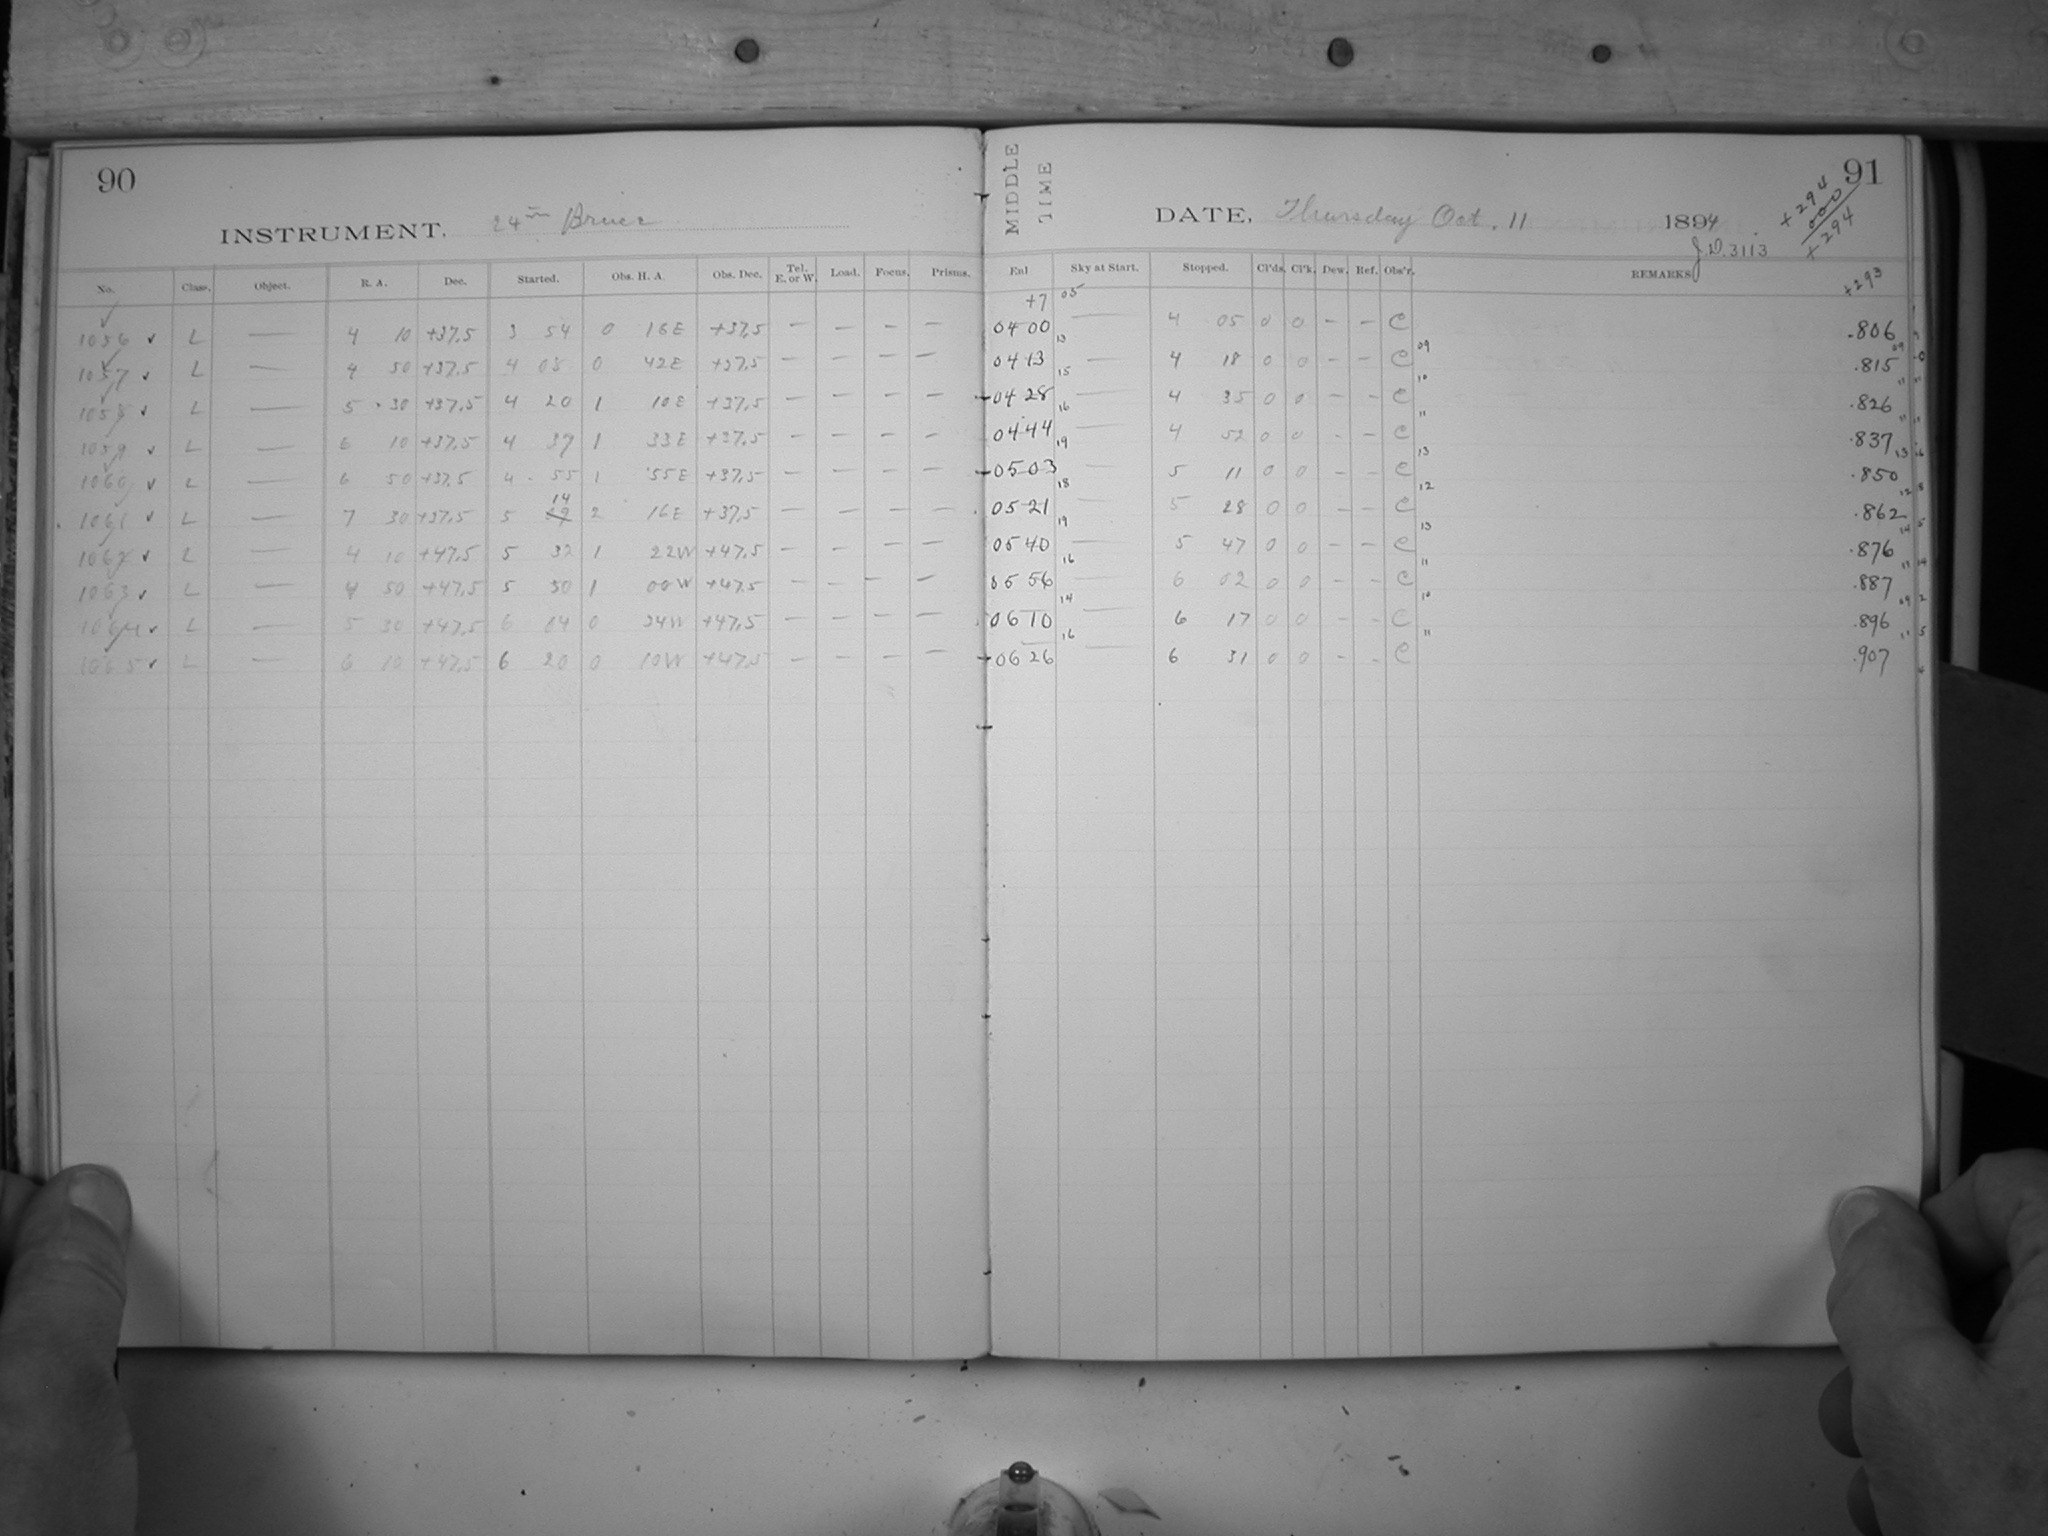 90
INSTRUMENT, 24 in Bruce
No. Class. Object. R. A. Dec. Started. Obs. H. A. Obs. Dec. Tel. E. or W. Load. Focus. Prisms.
1056 ✓ L — 4 10 +37.5 3 54 0 16E +37.5 — — — —
1057 ✓ L — 4 50 +37.5 4 08 0 42E +37.5 — — — —
1058 ✓ L — 5 30 +37.5 4 20 1 10E +37.5 — — — —
1059 ✓ L — 6 10 +37.5 4 37 1 33E +37.5 — — — —
1060 ✓ L — 6 50 +37.5 4 55 1 55E +37.5 — — — —
1061 ✓ L — 7 30 +37.5 5 14 2 16E +37.5 — — — —
1062 ✓ L — 4 10 +47.5 5 32 1 22W +47.5 — — — —
1063 ✓ L — 4 50 +47.5 5 50 1 00W +47.5 — — — —
1064 ✓ L — 5 30 +47.5 6 04 0 34W +47.5 — — — —
1065 ✓ L — 6 10 +47.5 6 20 0 10W +47.5 — — — —
91
MIDDLE
TIME
DATE, Thursday Oct. 11 1894
J.D. 3113
+294
000
+294
+293
Sky at Start. Stopped. Cl'ds. Cl'k. Dew. Ref. Obs'r. REMARKS
+7 05
0400 — 4 05 0 0 — — C .806
13 09 09
0413 — 4 18 0 0 — — C .815
15 10 11
0428 — 4 35 0 0 — — C .826
16 11 11
0444 — 4 52 0 0 — — C .837
19 13 13
0503 — 5 11 0 0 — — C .850
18 12 12
0521 — 5 28 0 0 — — C .862
19 13 14
0540 — 5 47 0 0 — — C .876
16 11 11
0556 — 6 02 0 0 — — C .887
14 10 09
0610 — 6 17 0 0 — — C .896
16 11 11
0626 — 6 31 0 0 — — C .907